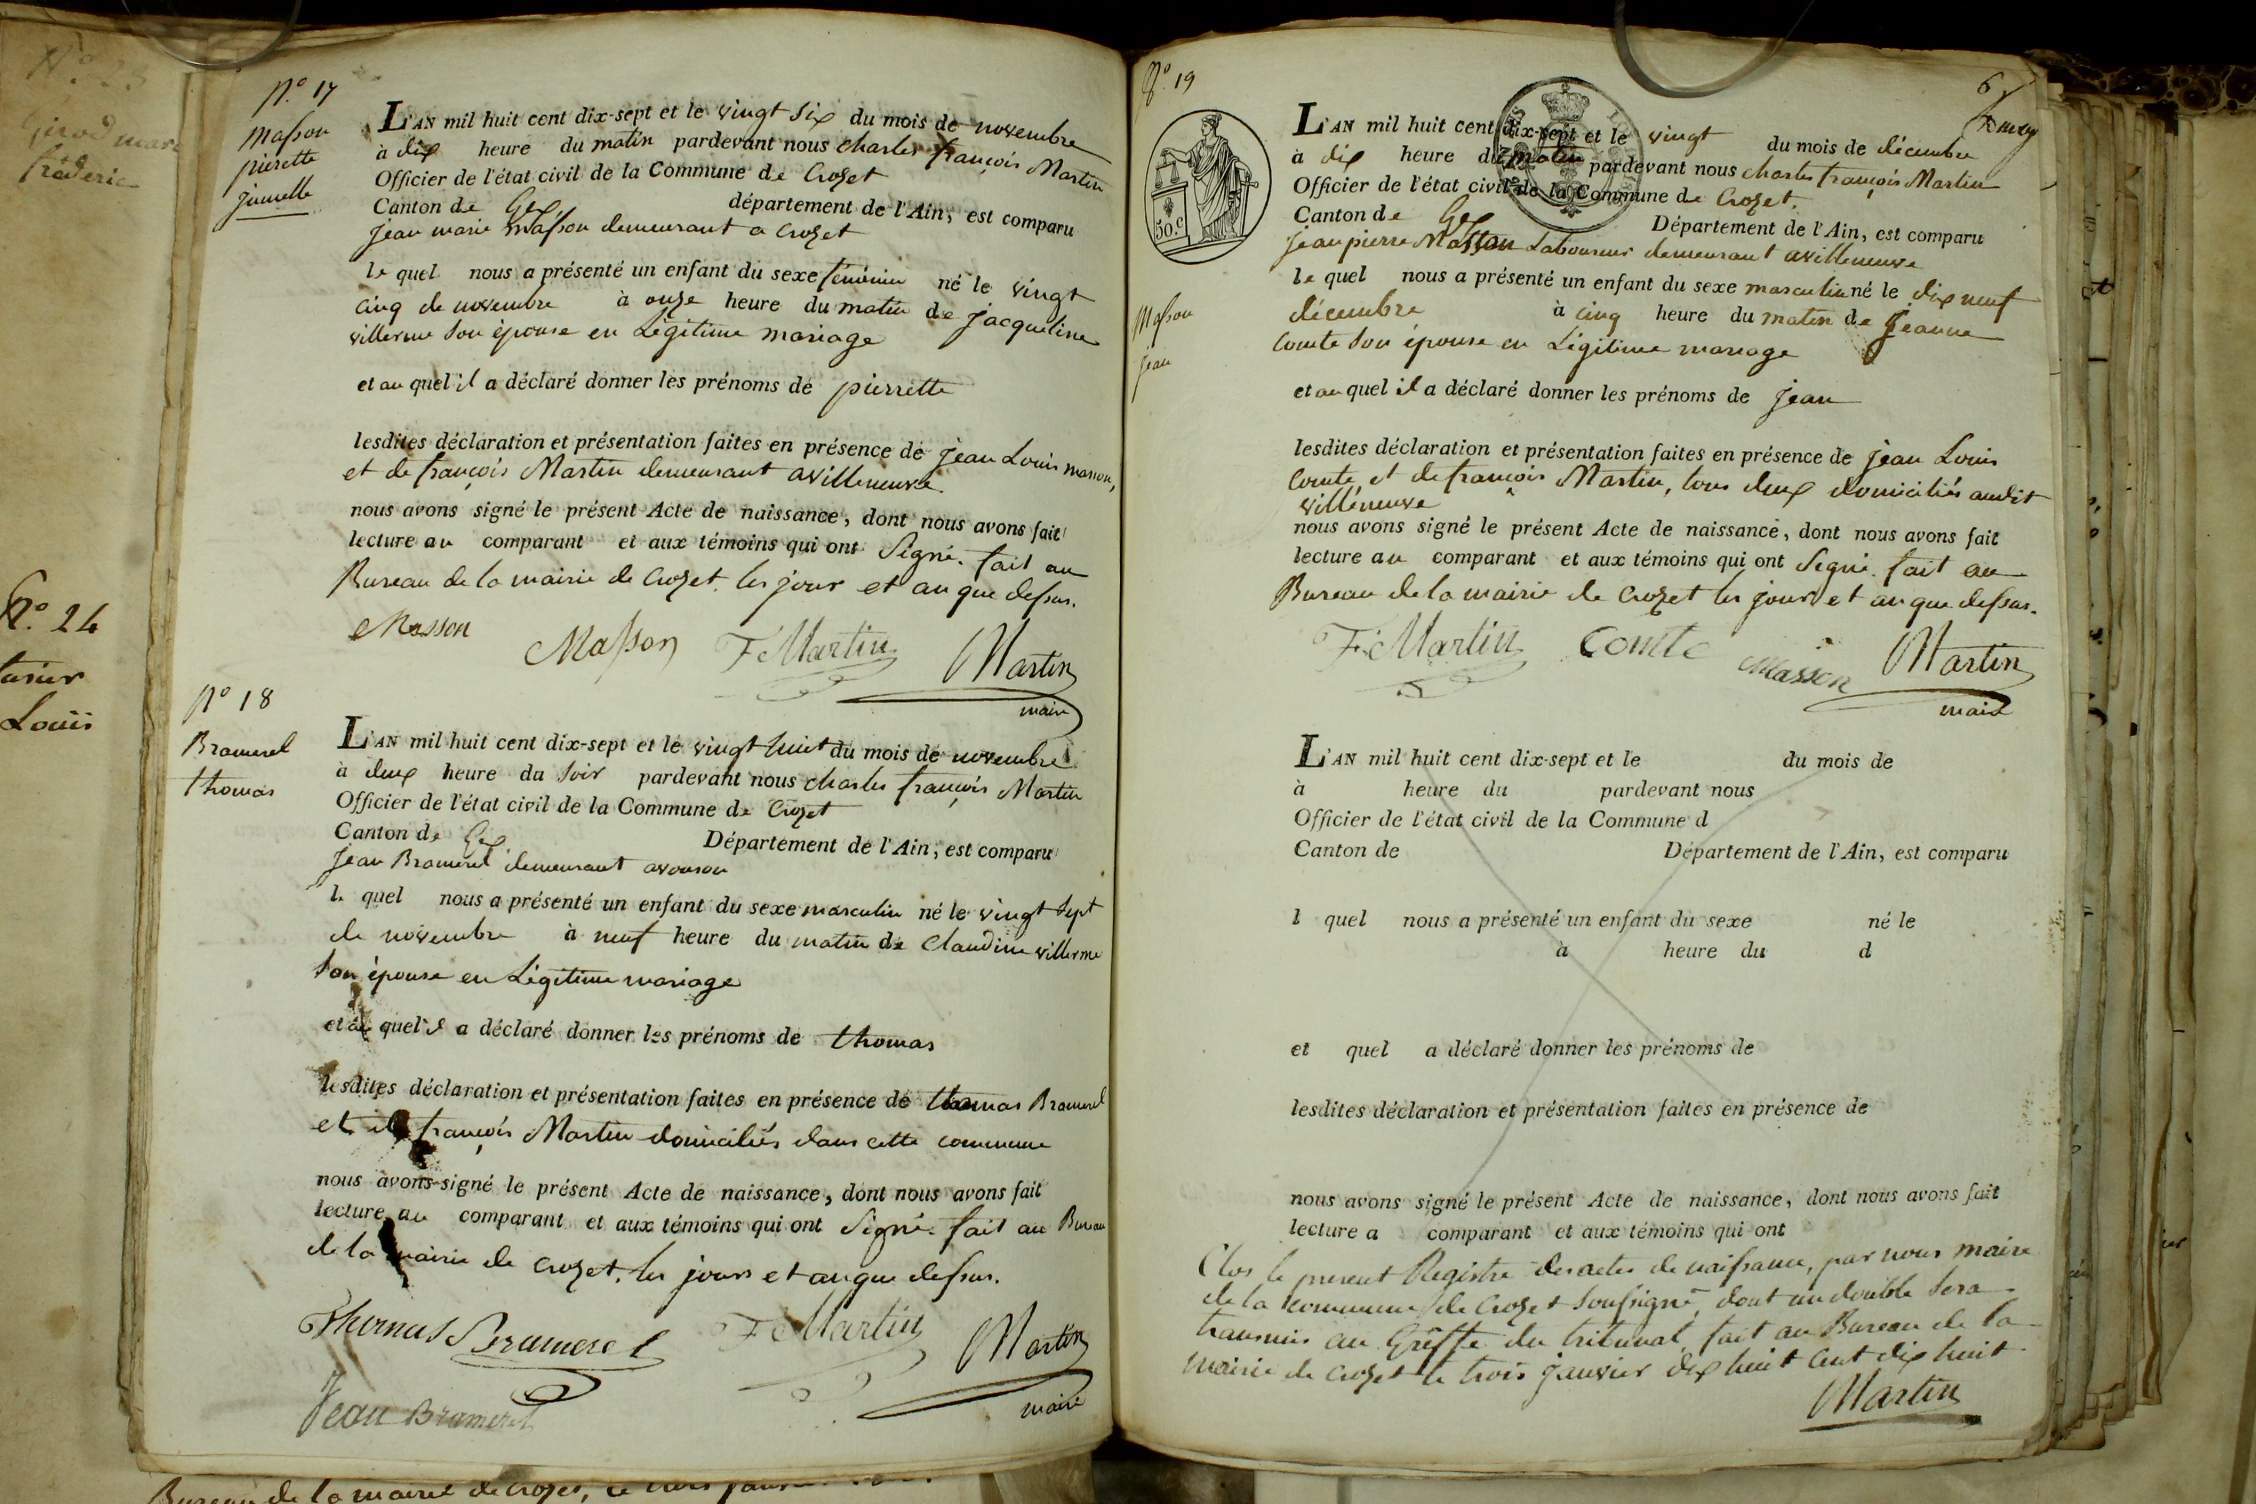 N.° 23
Girod marie
fréderic
N.° 24
Louis
N.° 17
Masson
pierette
jumelle
L'AN mil huit cent dix-sept et le vingt six du mois de novembre
à dix heure du matin pardevant nous charles françois Martin
Officier de l'état civil de la Commune de Crozet
Canton de Gex département de l'Ain, est comparu
Jean marie Masson demeurant a Crozet
le quel nous a présenté un enfant du sexe féminin né le vingt
cinq de novembre à onze heure du matin de jacqueline
villerme son épouse en Légitime mariage
et au quel il a déclaré donner les prénoms de pierrette
lesdites déclaration et présentation faites en présence de Jean Louis masson,
et de françois Martin demeurant a villeneuve.
nous avons signé le présent Acte de naissance, dont nous avons fait
lecture au comparant et aux témoins qui ont Signé. fait au
Bureau de la mairie de Crozet. les jour et an que dessus.
Masson Masson F. Martin Martin
maire
N° 18
Bramerel
thomas
L'AN mil huit cent dix-sept et le vingt huit du mois de novembre
à deux heure du soir pardevant nous charles françois Martin
Officier de l'état civil de la Commune de Crozet
Canton de Gex Département de l'Ain, est comparu
Jean Bramerel demeurant avouson
le quel nous a présenté un enfant du sexe masculin né le vingt sept
de novembre à neuf heure du matin de Claudine villerme
son épouse en Légitime mariage
et au quel il a déclaré donner les prénoms de thomas
lesdites déclaration et présentation faites en présence de thomas Bramerel
et de françois Martin domiciliés dans cette commune
nous avons signé le présent Acte de naissance, dont nous avons fait
lecture au comparant et aux témoins qui ont Signé. fait au Bureau
de la mairie de Crozet, les jours et an que dessus.
Thomas Bramerel F. Martin Martin
maire
Jean Bramerel
N.° 19
6
50.c
Masson
jean
L'AN mil huit cent dix-sept et le vingt du mois de décembre
à dix heure du matin pardevant nous charles françois Martin
Officier de l'état civil de la Commune de Crozet.
Canton de Gex Département de l'Ain, est comparu
Jean pierre Masson Laboureur demeurant a villeneuve
le quel nous a présenté un enfant du sexe masculin né le dix neuf
décembre à cinq heure du matin de Jeanne
Comte son épouse en Légitime mariage
et au quel il a déclaré donner les prénoms de jean
lesdites déclaration et présentation faites en présence de jean Louis
Comte, et de françois Martin, tous deux domiciliés audit
villeneuve
nous avons signé le présent Acte de naissance, dont nous avons fait
lecture au comparant et aux témoins qui ont Signé. fait au
Bureau de la mairie de Crozet les jours et an que dessus.
F. Martin Comte Masson Martin
maire
L'AN mil huit cent dix-sept et le du mois de
à heure du pardevant nous
Officier de l'état civil de la Commune d
Canton de Département de l'Ain, est comparu
l quel nous a présenté un enfant du sexe né le
à heure du d
et quel a déclaré donner les prénoms de
lesdites déclaration et présentation faites en présence de
nous avons signé le présent Acte de naissance, dont nous avons fait
lecture a comparant et aux témoins qui ont
Clos le present Registre des actes de naissance, par nous maire
de la commune de Crozet soussigné, dont un double sera
transmis au Greffe du tribunal, fait au Bureau de la
mairie de Crozet le trois janvier dix huit cent dix huit.
Martin
Bureau de la mairie de Crozet, le trois